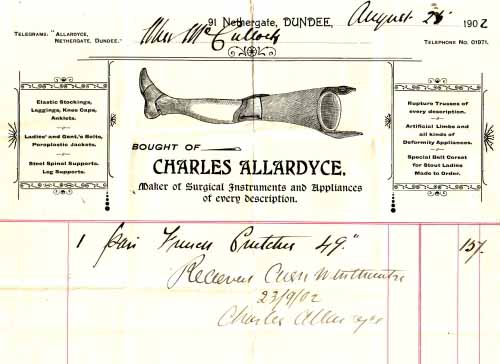 91 Nethergate, DUNDEE, August 25 1902
TELEGRAMS: "ALLARDYCE,
NETHERGATE, DUNDEE."
McCullock
TELEPHONE NO. 01971.
Elastic Stockings,
Leggings, Knee Caps,
Anklets.
Ladies' and Gent.'s Belts,
Poroplastic Jackets.
Steel Spinal Supports.
Leg Supports.
Rupture Trusses of
every description.
Artificial Limbs and
all kinds of
Deformity Appliances.
Special Belt Corset
for Stout Ladies
Made to Order.
BOUGHT OF
CHARLES ALLARDYCE,
Maker of Surgical Instruments and Appliances
of every description.
1 pair French Crutches 49" 15/.
Received Cash
23/9/02
Charles Allardyce